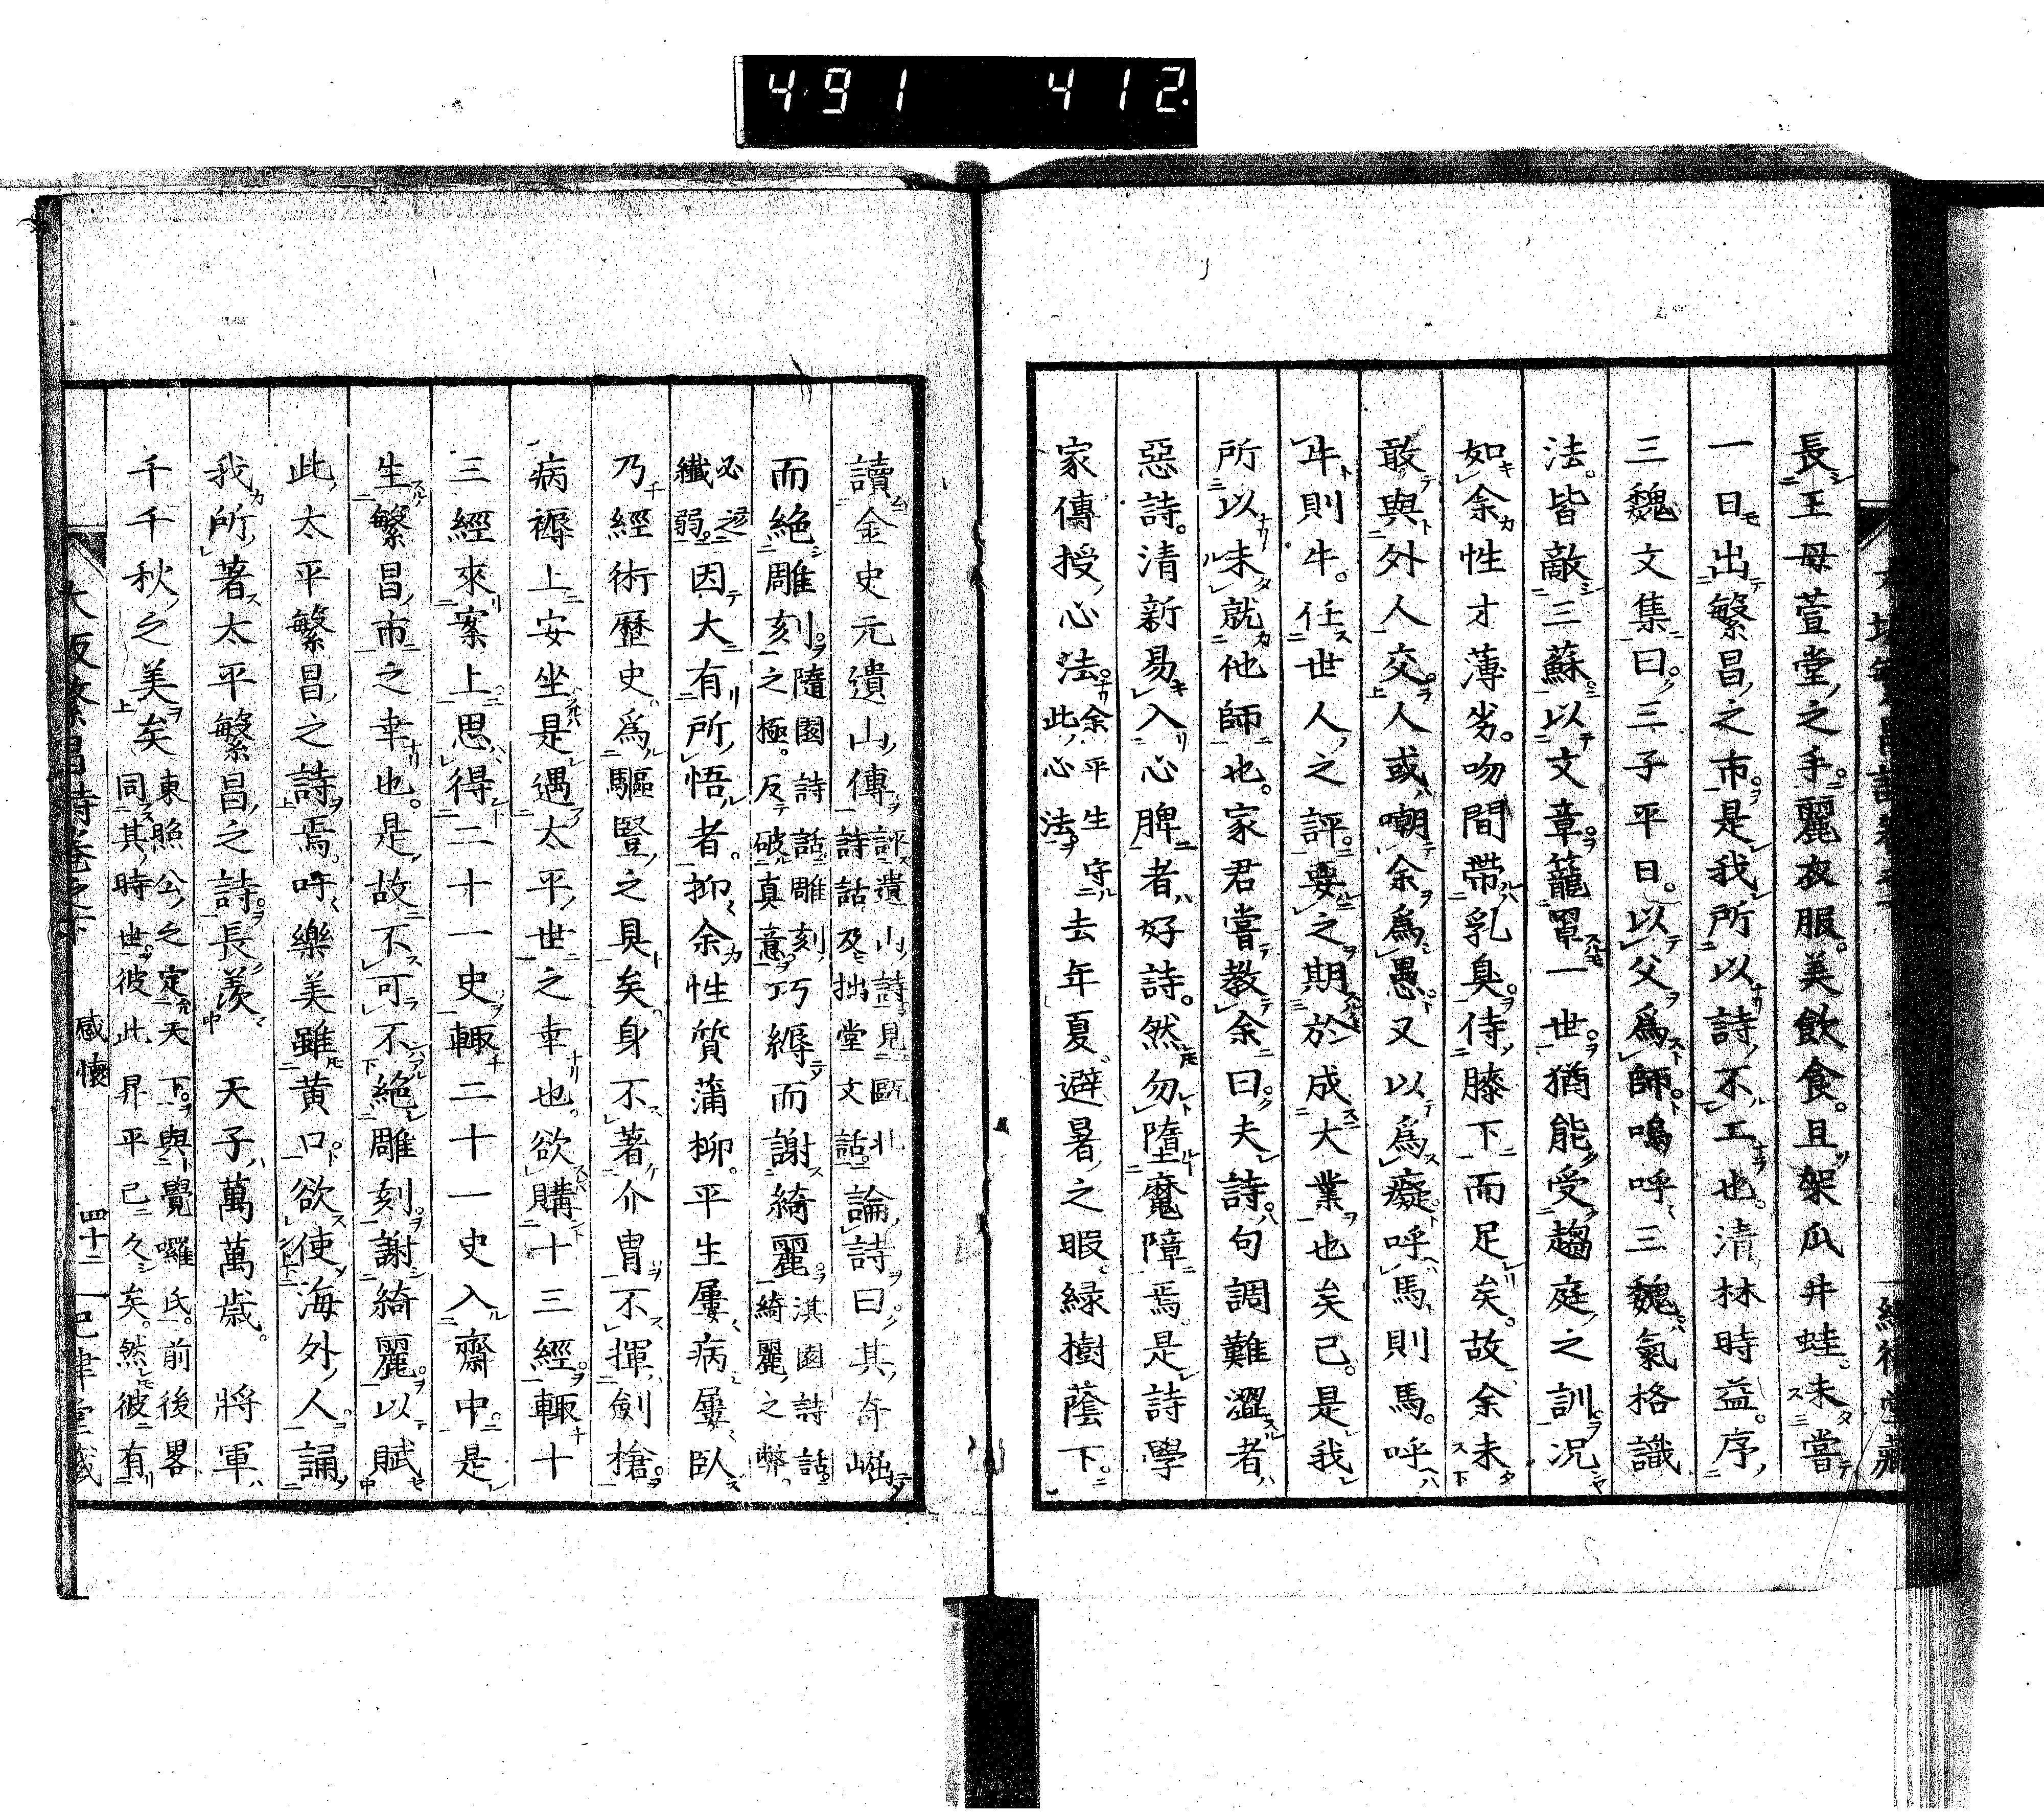 491 412
長王母萱堂之手。麗衣服。美飲食。且架瓜井蛙。未嘗
一日出繁昌之市。是我所以詩不工也。清林時益。序
三魏文集曰。三子平日。以父爲師。嗚呼三魏氣格識
法。皆敵三蘇。以文章籠罩一世。猶能受趨庭之訓。況
如余性才薄劣。吻間帶乳臭。侍膝下而足矣。故余未
敢與外人交。人或嘲余爲愚。又以爲癡。呼馬則馬。呼
牛則牛。任世人之評。要之期於成大業也矣已。是我
所以未就他師也。家君嘗教余曰。夫詩句調難澀者
惡詩。清新易入心脾者好詩。然勿墮魔障焉。是詩學
家傳授心法。余平生守此心法。去年夏避暑之暇。綠樹蔭下。
讀金史元遺山傳。評遺山詩見甌北詩話及拙堂文話。論詩曰。其奇崛
而絕雕刻。隨園詩話雕刻之極。反破真意。巧縟而謝綺麗。淇園詩話綺麗之弊。
必之纖弱。因大有所悟者。抑余性質蒲柳。平生屢病屢臥
乃經術歷史。爲驅豎之具矣。身不著介冑。不揮劍槍。
病褥上安坐。是遇太平世之幸也。欲購十三經。輙十
三經來案上。思得二十一史。輙二十一史入齋中。是
生繁昌市之幸也。是故不可不絕雕刻。謝綺麗。以賦
此太平繁昌之詩焉。呼樂美雖黃口。欲使海外人誦
我所著太平繁昌之詩。長羨 天子萬萬歲。 將軍
千千秋之美矣。東照公之定天下。與覺囉氏。前後畧同其時世。彼此昇平已久矣。然彼有
大阪繁昌詩卷之下 感懷 四十二